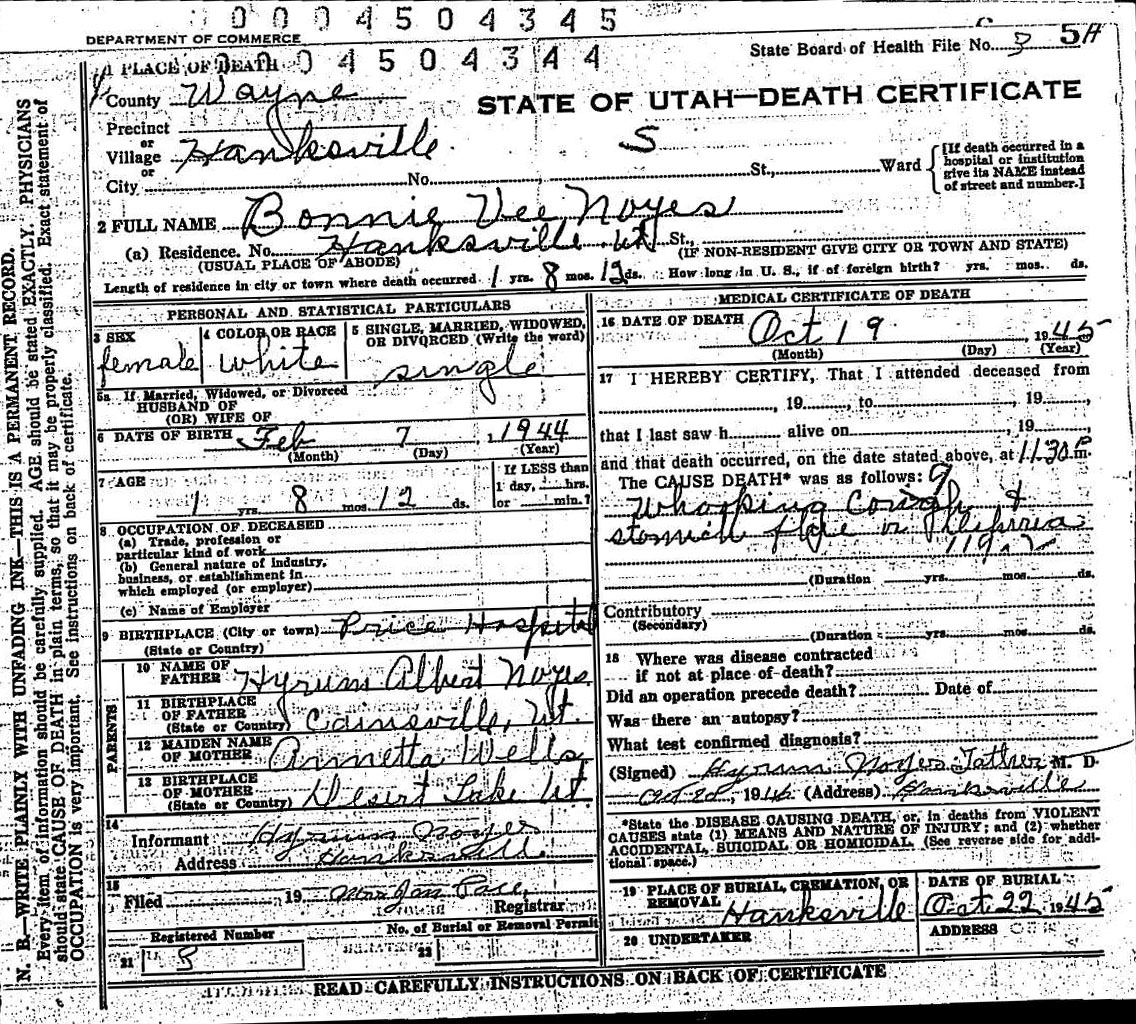 0 0 0 4 5 0 4 3 4 5
DEPARTMENT OF COMMERCE
State Board of Health File No. 3 5A
0 4 5 0 4 3 4 4
1 PLACE OF DEATH
County Wayne
STATE OF UTAH—DEATH CERTIFICATE
Precinct
or
Village Hanksville S
or
City No. St., Ward
[If death occurred in a
hospital or institution
give its NAME instead
of street and number.]
2 FULL NAME Bonnie Vee Noyes
(a) Residence. No. Hanksville Ut St.,
(USUAL PLACE OF ABODE) (IF NON-RESIDENT GIVE CITY OR TOWN AND STATE)
Length of residence in city or town where death occurred 1 yrs. 8 mos. 12 ds. How long in U. S., if of foreign birth? yrs. mos. ds.
PERSONAL AND STATISTICAL PARTICULARS
3 SEX
female
4 COLOR OR RACE
white
5 SINGLE, MARRIED, WIDOWED,
OR DIVORCED (Write the word)
single
5a If Married, Widowed, or Divorced
HUSBAND OF
(OR) WIFE OF
6 DATE OF BIRTH Feb 7 1944
(Month) (Day) (Year)
7 AGE
1 yrs. 8 mos. 12 ds.
If LESS than
1 day, hrs.
or min.?
8 OCCUPATION OF DECEASED
(a) Trade, profession or
particular kind of work
(b) General nature of industry,
business, or establishment in
which employed (or employer)
(c) Name of Employer
9 BIRTHPLACE (City or town) Price Hospital
(State or Country)
PARENTS
10 NAME OF
FATHER Hyrum Albert Noyes
11 BIRTHPLACE
OF FATHER
(State or Country) Caineville, Ut.
12 MAIDEN NAME
OF MOTHER Annetta Wells
13 BIRTHPLACE
OF MOTHER
(State or Country) Desert Lake Ut
14
Informant Hyrum Noyes
Address Hanksville
15
Filed 19 Pace
Registrar
Registered Number No. of Burial or Removal Permit
21 3 22
MEDICAL CERTIFICATE OF DEATH
16 DATE OF DEATH Oct 19 1945
(Month) (Day) (Year)
17 I HEREBY CERTIFY, That I attended deceased from
, 19 , to , 19 ,
that I last saw h alive on , 19
and that death occurred, on the date stated above, at 11.30 P m.
The CAUSE DEATH* was as follows: 9
Whooping Cough &
stomich or
119
(Duration yrs. mos. ds.
Contributory
(Secondary)
(Duration yrs. mos. ds.
18 Where was disease contracted
if not at place of death?
Did an operation precede death? Date of
Was there an autopsy?
What test confirmed diagnosis?
(Signed) Hyrum Noyes Father M. D.
Oct , 19 (Address) Hanksville
*State the DISEASE CAUSING DEATH, or, in deaths from VIOLENT
CAUSES state (1) MEANS AND NATURE OF INJURY; and (2) whether
ACCIDENTAL, SUICIDAL OR HOMICIDAL. (See reverse side for addi-
tional space.)
19 PLACE OF BURIAL, CREMATION, OR
REMOVAL Hanksville
DATE OF BURIAL
Oct 22 1945
20 UNDERTAKER
ADDRESS
READ CAREFULLY INSTRUCTIONS ON BACK OF CERTIFICATE
N. B.—WRITE PLAINLY WITH UNFADING INK—THIS IS A PERMANENT RECORD.
Every item of information should be carefully supplied. AGE should be stated EXACTLY. PHYSICIANS
should state CAUSE OF DEATH in plain terms, so that it may be properly classified. Exact statement of
OCCUPATION is very important. See instructions on back of certificate.